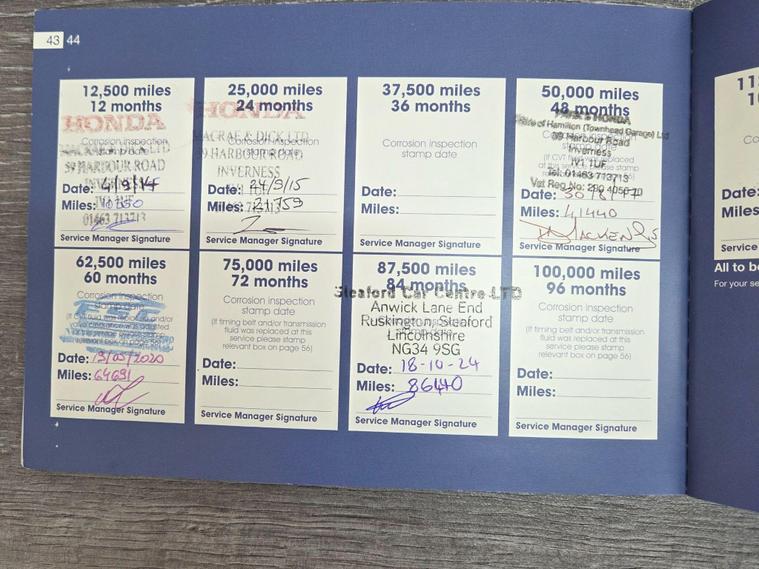 43 44
12,500 miles
12 months
HONDA
Corrosion inspection
stamp date
MACRAE & DICK LTD
39 HARBOUR ROAD
INVERNESS
IV1 1UF
01463 713713
Date: 4/9/14
Miles:
Service Manager Signature
25,000 miles
24 months
HONDA
Corrosion inspection
stamp date
MACRAE & DICK LTD
39 HARBOUR ROAD
INVERNESS
Date: 24/9/15
Miles: 21759
Service Manager Signature
37,500 miles
36 months
Corrosion inspection
stamp date
Date:
Miles:
Service Manager Signature
50,000 miles
48 months
PARK'S HONDA
of Hamilton (Townhead Garage) Ltd
39 Harbour Road
Inverness
IV1 1UF
Tel: 01463 773713
Vat Reg No:
Date: 30/8/17
Miles: 41440
Service Manager Signature
62,500 miles
60 months
Corrosion inspection
stamp date
Date: 13/05/2020
Miles: 64691
Service Manager Signature
75,000 miles
72 months
Corrosion inspection
stamp date
(If timing belt and/or transmission
fluid was replaced at this
service please stamp
relevant box on page 56)
Date:
Miles:
Service Manager Signature
87,500 miles
84 months
Sleaford Car Centre LTD
Anwick Lane End
Ruskington, Sleaford
Lincolnshire
NG34 9SG
Date: 18-10-24
Miles: 86440
Service Manager Signature
100,000 miles
96 months
Corrosion inspection
stamp date
(If timing belt and/or transmission
fluid was replaced at this
service please stamp
relevant box on page 56)
Date:
Miles:
Service Manager Signature
11
1
Date
Miles
Service
All to b
For your se